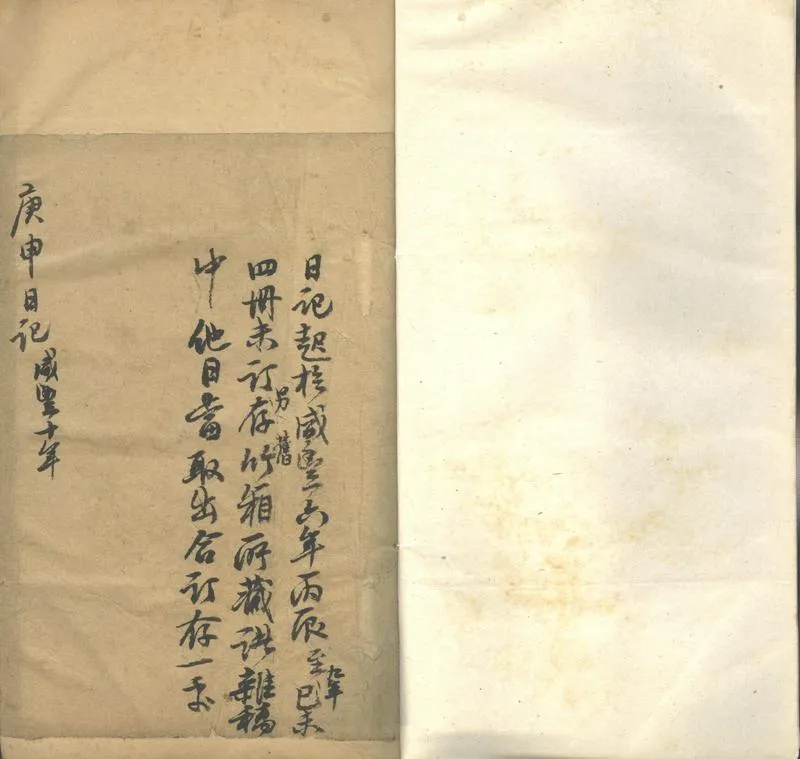 日記起於咸豐六年丙辰至九年己未
四冊未訂存另舊竹箱所藏諸雜稿
中他日當取出合訂存一
庚申日記咸豐十年